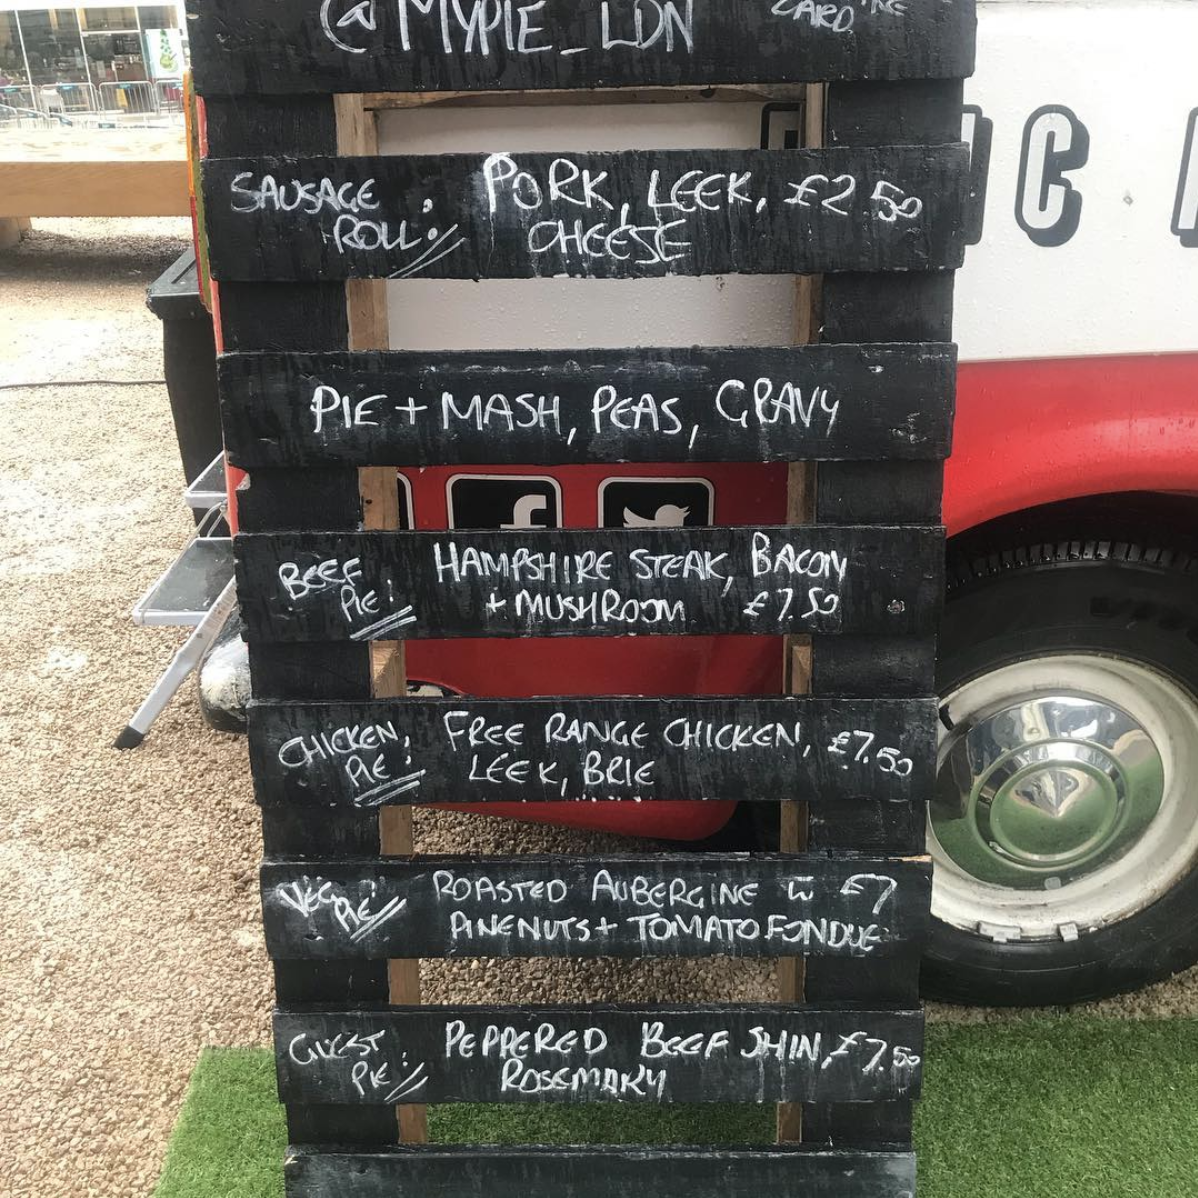 @MYPIE_LDN
CARD
SAUSAGE ROLL:
PORK, LEEK, £2.50
CHEESE
PIE + MASH, PEAS, GRAVY
BEEF PIE:
HAMPSHIRE STEAK, BACON
+ MUSHROOM £7.50
CHICKEN PIE:
FREE RANGE CHICKEN, £7.50
LEEK, BRIE
VEG PIE:
ROASTED AUBERGINE W £7
PINENUTS + TOMATO FONDUE
GUEST PIE:
PEPPERED BEEF SHIN, £7.50
ROSEMARY
C